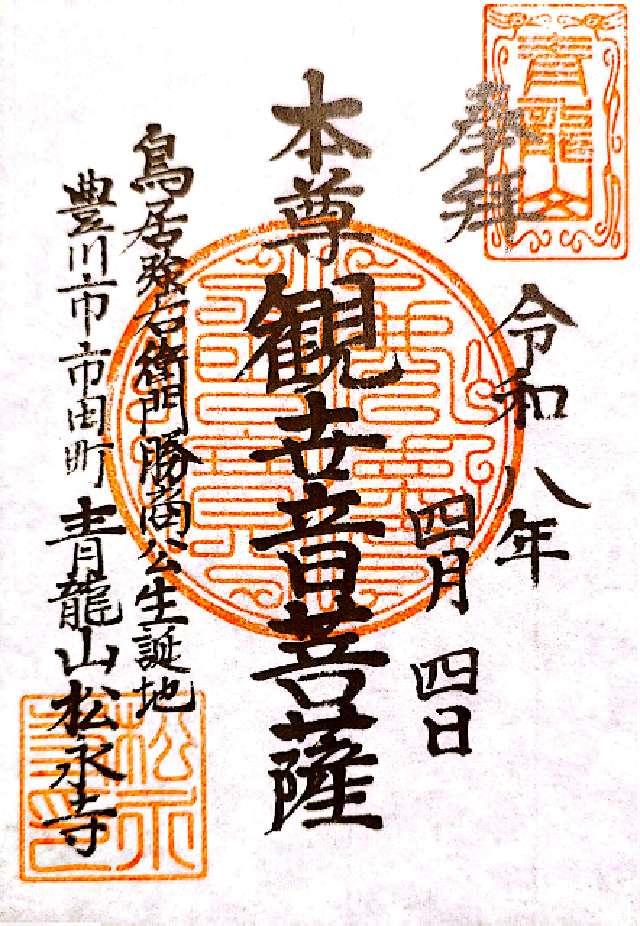 奉拝
青龍山
令和八年
四月四日
本尊観世音菩薩
鳥居強右衛門勝商公生誕地
豊川市市田町青龍山松永寺
松永寺印